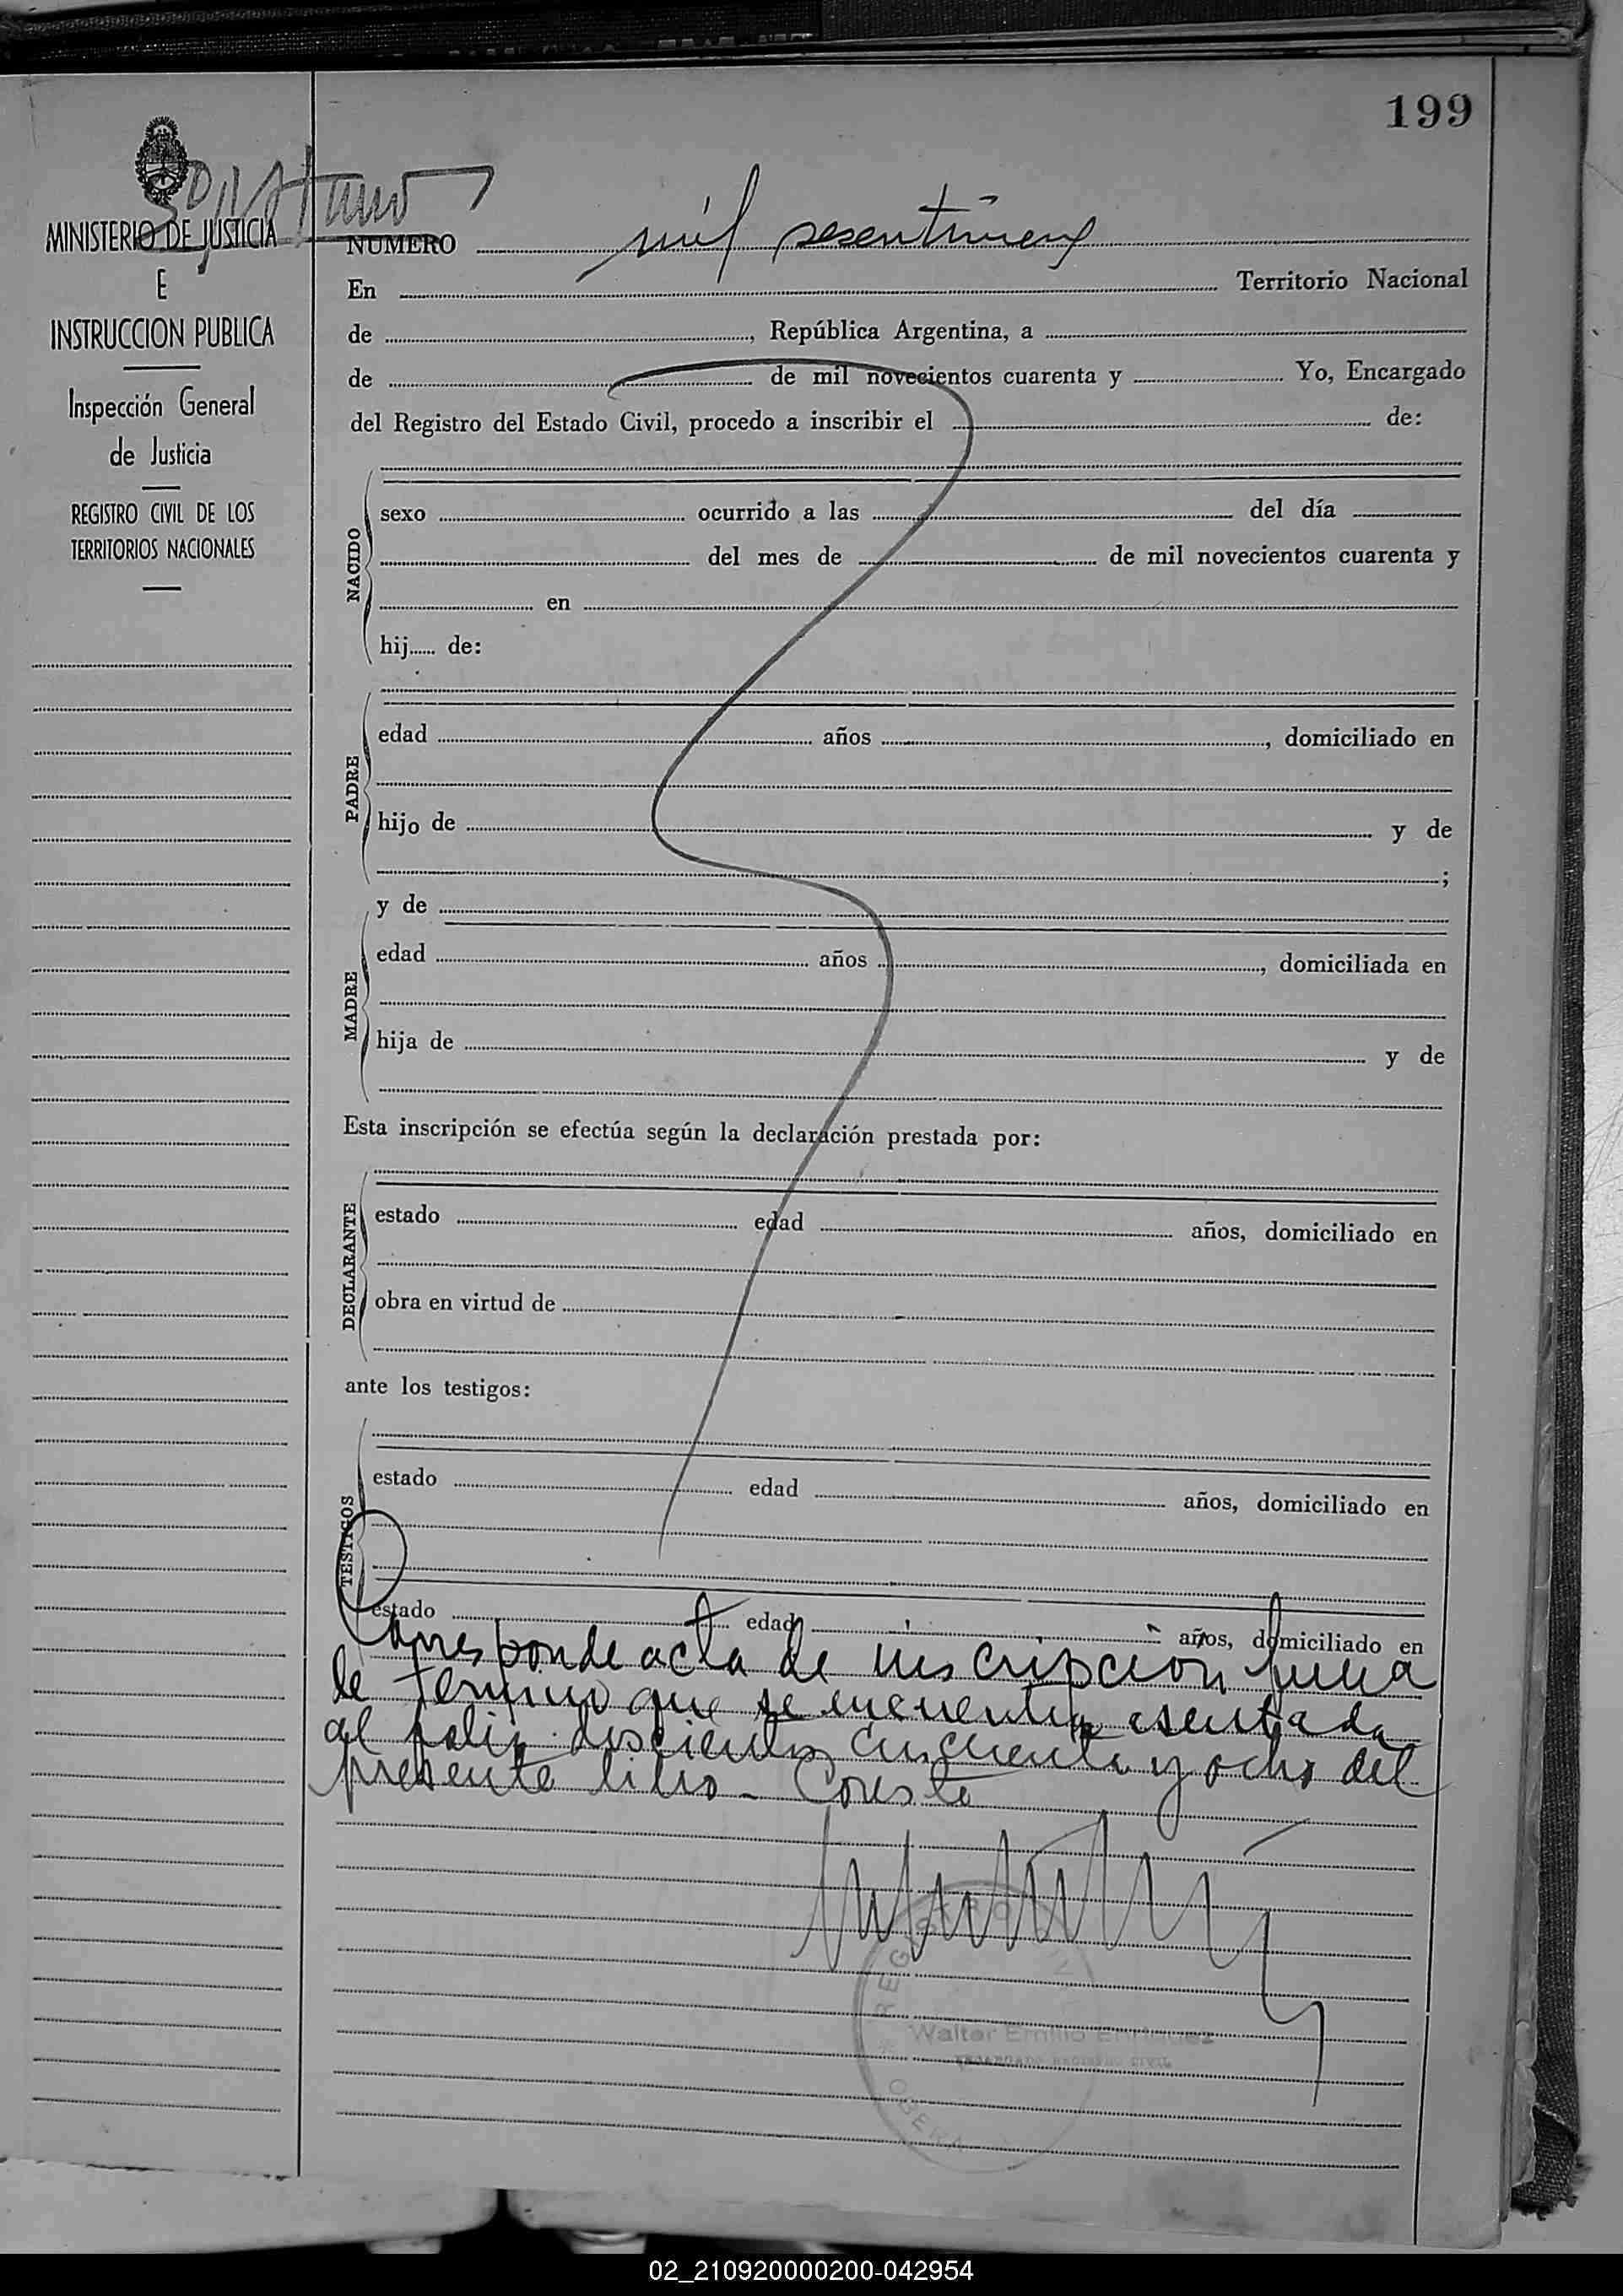 199
MINISTERIO DE JUSTICIA
E
INSTRUCCION PUBLICA
Inspección General
de Justicia
REGISTRO CIVIL DE LOS
TERRITORIOS NACIONALES
NUMERO mil
En Territorio Nacional
de , República Argentina, a
de de mil novecientos cuarenta y Yo, Encargado
del Registro del Estado Civil, procedo a inscribir el de:
NACIDO
sexo ocurrido a las del día
del mes de de mil novecientos cuarenta y
en
hij...... de:
PADRE
edad años , domiciliado en
hijo de y de
;
y de
MADRE
edad años , domiciliada en
hija de y de
Esta inscripción se efectúa según la declaración prestada por:
DECLARANTE
estado edad años, domiciliado en
obra en virtud de
ante los testigos:
TESTIGOS
estado edad años, domiciliado en
estado edad años, domiciliado en
Corresponde acta de inscripcion fuera
de termino que se encuentra asentada
al folio doscientos cincuenta y ocho del
presente libro - Conste
REGISTRO CIVIL
Walter Emilio Enriquez
ENCARGADO REGISTRO CIVIL
OBERA
02_210920000200-042954